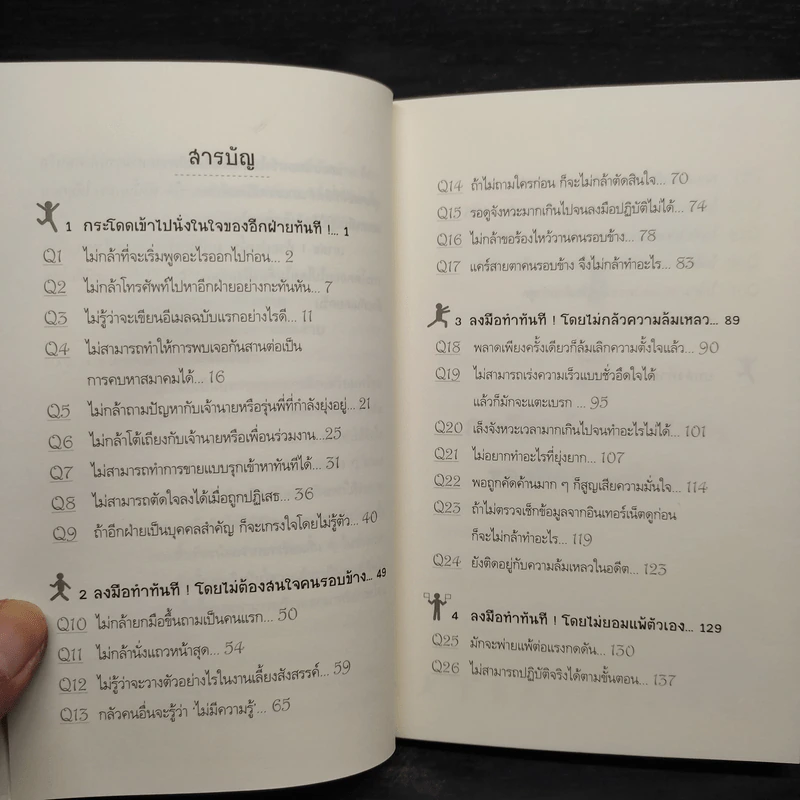 สารบัญ
1 กระโดดเข้าไปนั่งในใจของอีกฝ่ายทันที !... 1
Q1 ไม่กล้าที่จะเริ่มพูดอะไรออกไปก่อน... 2
Q2 ไม่กล้าโทรศัพท์ไปหาอีกฝ่ายอย่างกะทันหัน... 7
Q3 ไม่รู้ว่าจะเขียนอีเมลฉบับแรกอย่างไรดี... 11
Q4 ไม่สามารถทำให้การพบเจอกันสานต่อเป็น
การคบหาสมาคมได้... 16
Q5 ไม่กล้าถามปัญหากับเจ้านายหรือรุ่นพี่ที่กำลังยุ่งอยู่... 21
Q6 ไม่กล้าโต้เถียงกับเจ้านายหรือเพื่อนร่วมงาน...25
Q7 ไม่สามารถทำการขายแบบรุกเข้าหาทันทีได้... 31
Q8 ไม่สามารถตัดใจลงได้เมื่อถูกปฏิเสธ... 36
Q9 ถ้าอีกฝ่ายเป็นบุคคลสำคัญ ก็จะเกรงใจโดยไม่รู้ตัว... 40
2 ลงมือทำทันที ! โดยไม่ต้องสนใจคนรอบข้าง... 49
Q10 ไม่กล้ายกมือขึ้นถามเป็นคนแรก... 50
Q11 ไม่กล้านั่งแถวหน้าสุด... 54
Q12 ไม่รู้ว่าจะวางตัวอย่างไรในงานเลี้ยงสังสรรค์... 59
Q13 กลัวคนอื่นจะรู้ว่า 'ไม่มีความรู้'... 65
Q14 ถ้าไม่ถามใครก่อน ก็จะไม่กล้าตัดสินใจ... 70
Q15 รอดูจังหวะมากเกินไปจนลงมือปฏิบัติไม่ได้... 74
Q16 ไม่กล้าขอร้องไหว้วานคนรอบข้าง... 78
Q17 แคร์สายตาคนรอบข้าง จึงไม่กล้าทำอะไร... 83
3 ลงมือทำทันที ! โดยไม่กลัวความล้มเหลว... 89
Q18 พลาดเพียงครั้งเดียวก็ล้มเลิกความตั้งใจแล้ว... 90
Q19 ไม่สามารถเร่งความเร็วแบบชั่วอึดใจได้
แล้วก็มักจะแตะเบรก ... 95
Q20 เล็งจังหวะเวลามากเกินไปจนทำอะไรไม่ได้... 101
Q21 ไม่อยากทำอะไรที่ยุ่งยาก... 107
Q22 พอถูกคัดค้านมาก ๆ ก็สูญเสียความมั่นใจ... 114
Q23 ถ้าไม่ตรวจเช็กข้อมูลจากอินเทอร์เน็ตดูก่อน
ก็จะไม่กล้าทำอะไร... 119
Q24 ยังติดอยู่กับความล้มเหลวในอดีต... 123
4 ลงมือทำทันที ! โดยไม่ยอมแพ้ตัวเอง... 129
Q25 มักจะพ่ายแพ้ต่อแรงกดดัน... 130
Q26 ไม่สามารถปฏิบัติจริงได้ตามขั้นตอน... 137